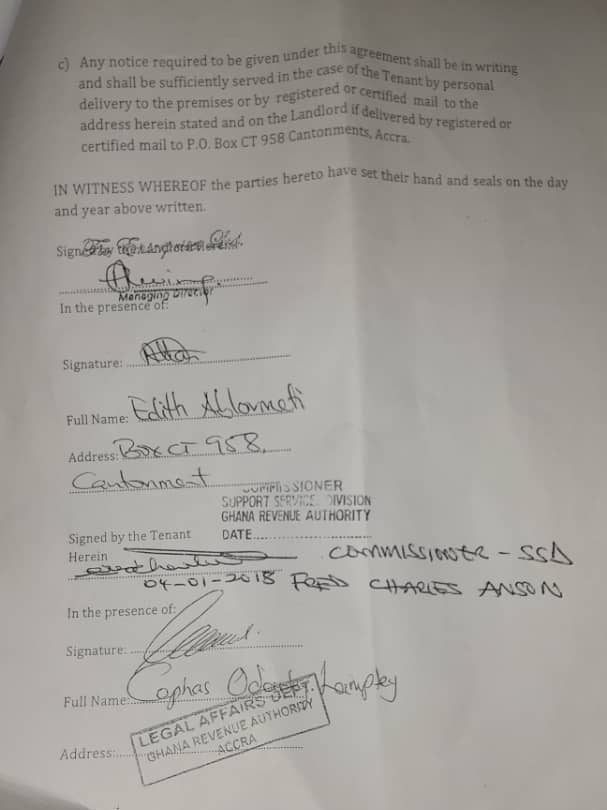 c) Any notice required to be given under this agreement shall be in writing
and shall be sufficiently served in the case of the Tenant by personal
delivery to the premises or by registered or certified mail to the
address herein stated and on the Landlord if delivered by registered or
certified mail to P.O. Box CT 958 Cantonments, Accra.
IN WITNESS WHEREOF the parties hereto have set their hand and seals on the day
and year above written.
Signed by the Landlord
Managing Director
In the presence of:
Signature:
Full Name: Edith Ablormeti
Address: Box CT 958,
Cantonment
COMMISSIONER
SUPPORT SERVICE DIVISION
GHANA REVENUE AUTHORITY
Signed by the Tenant DATE
Herein COMMISSIONER - SSD
04-01-2018 FRED CHARLES ANSON
In the presence of:
Signature:
Full Name: Cephas Lamptey
LEGAL AFFAIRS DEPT.
GHANA REVENUE AUTHORITY
ACCRA
Address: